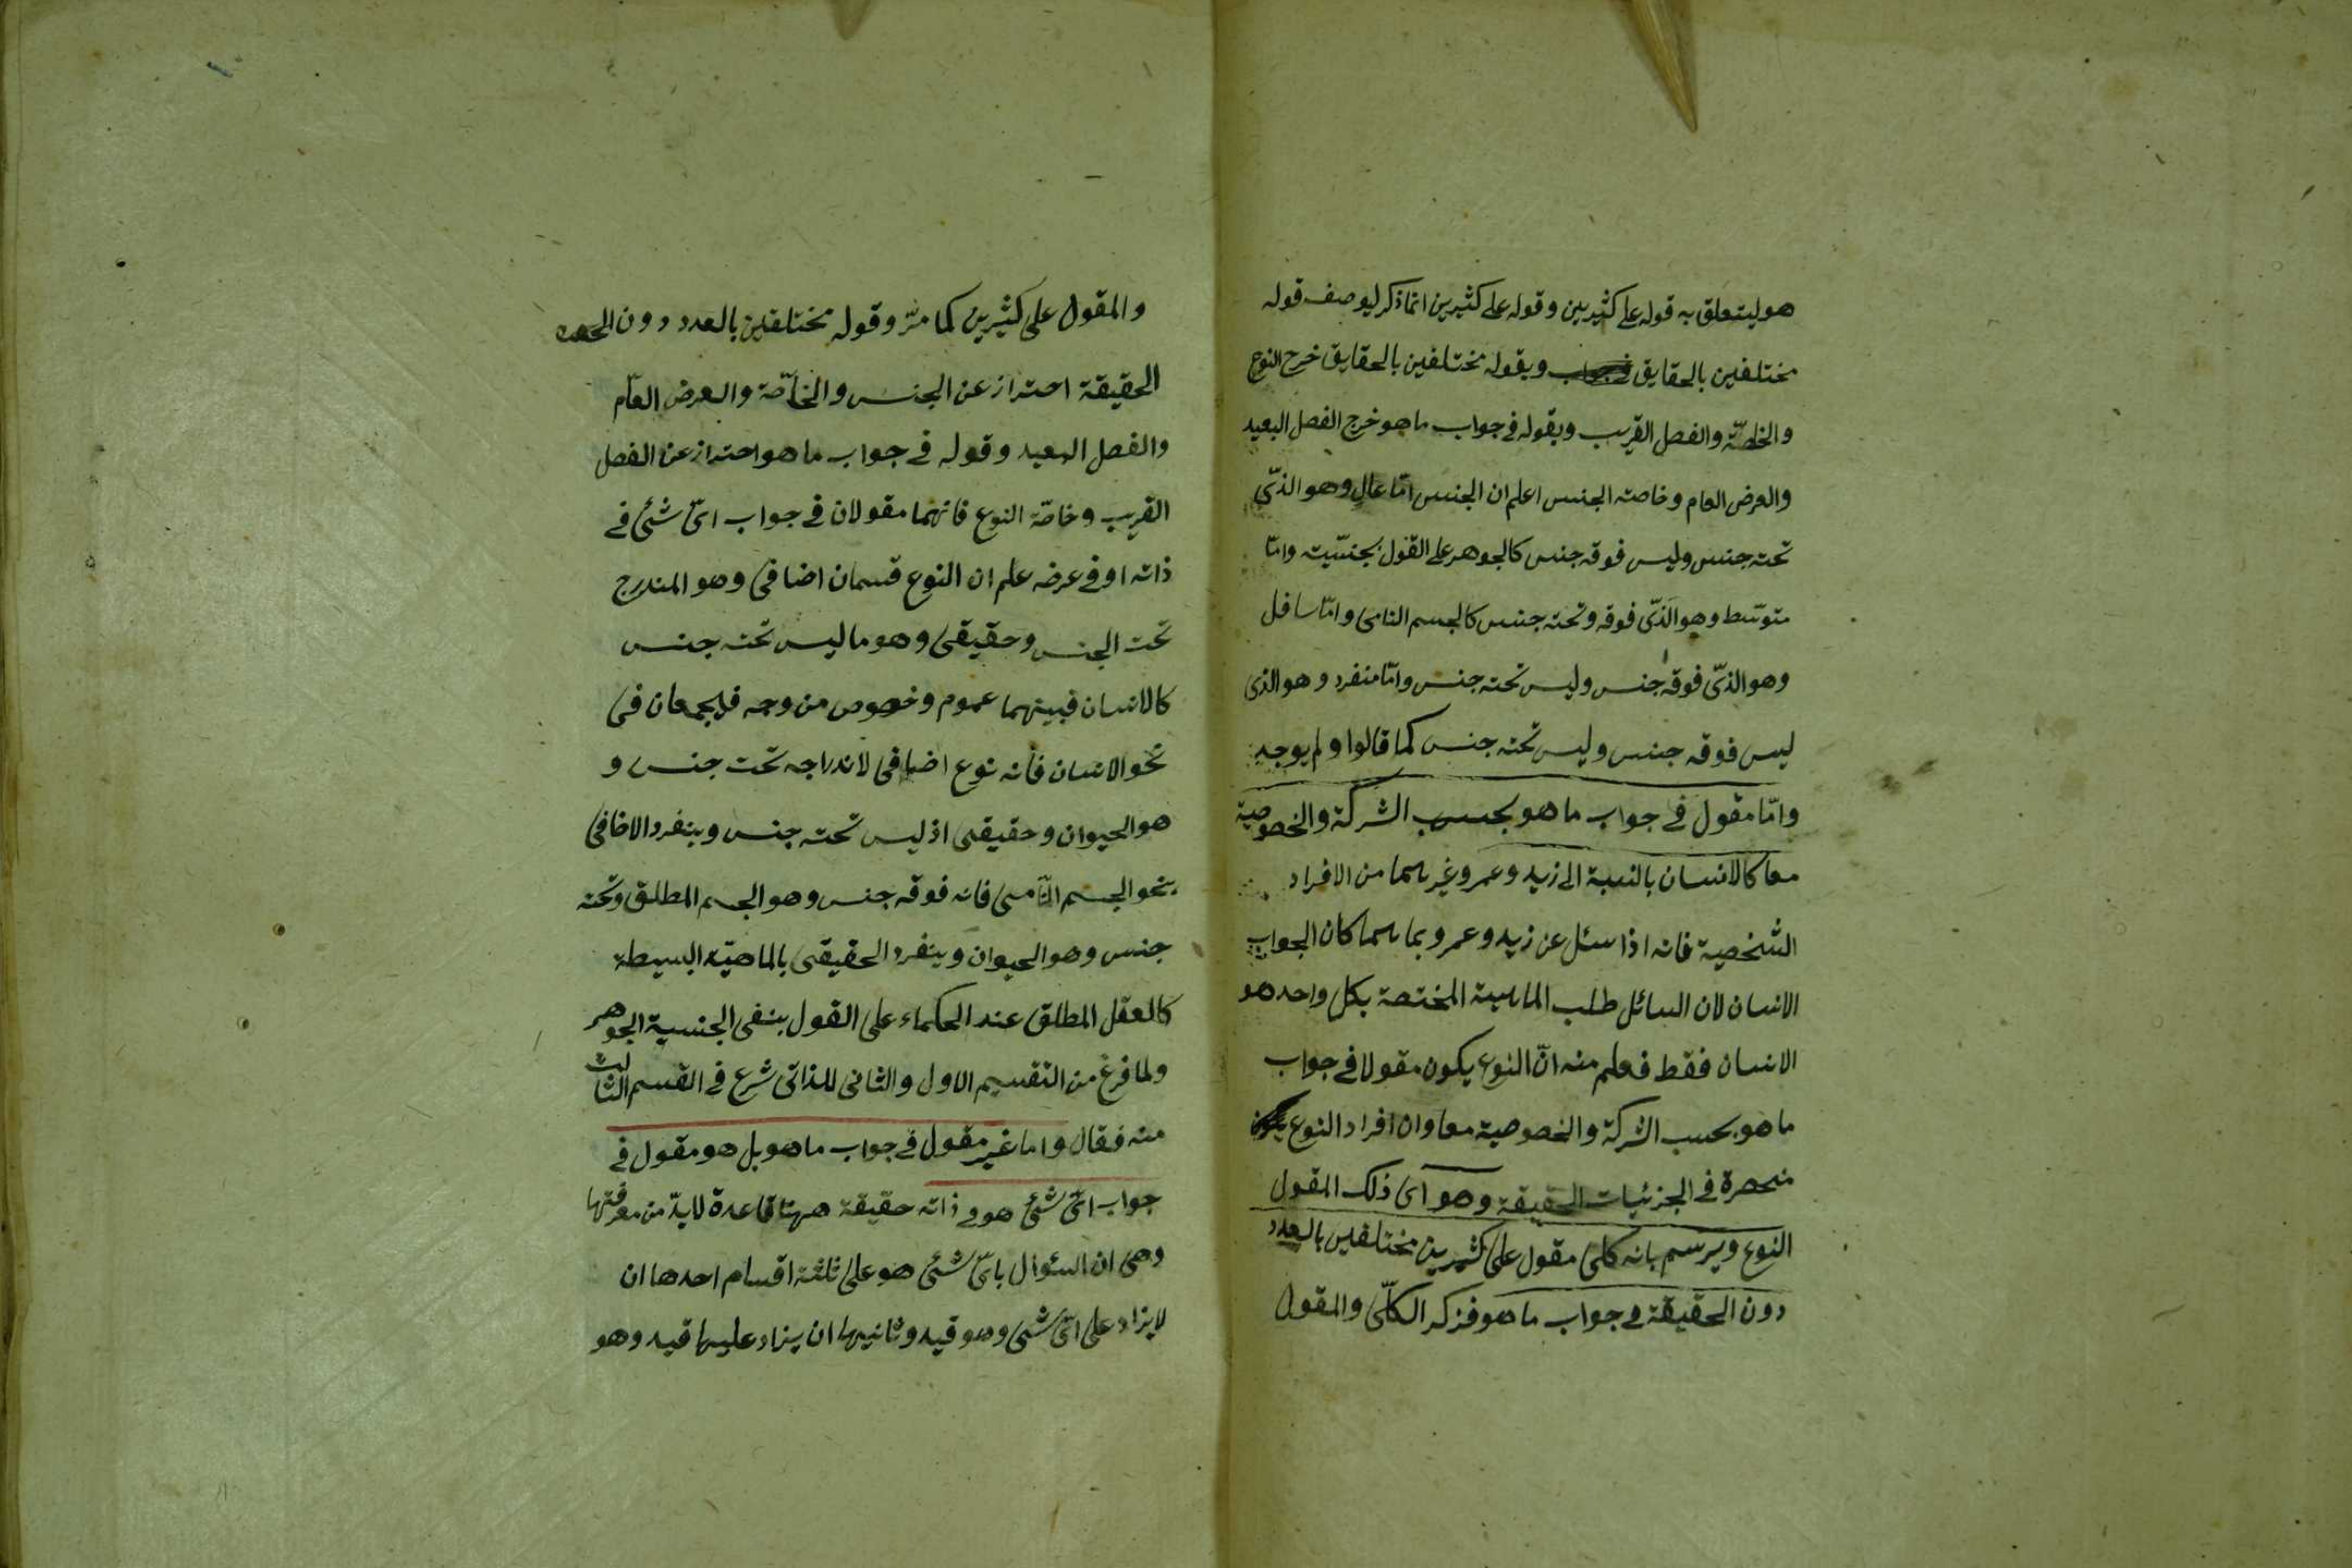 هو ليتعلق به قوله على كثيرين وقوله على كثيرين انما ذكر ليوصف قوله
مختلفين بالحقايق ويقوله مختلفين بالحقايق خرج النوع
والخاصّة والفصل القريب وبقوله في جواب ما هو خرج الفصل البعيد
والعرض العام وخاصة الجنس اعلم ان الجنس امّا عالٍ وهو الذّى
تحته جنس وليس فوقه جنس كالجوهر على القول بجنسّيته وامّا
متوسّط وهو الذّى فوقه وتحته جنس كالجسم النامى وامّا سافل
وهو الذّى فوقه جنس وليس تحته جنس وامّا منفرد وهو الذى
ليس فوقه جنس وليس تحته جنس كما قالوا ولم يوجد
وامّا مقول في جواب ما هو بحسب الشركة والخصوصية
معا كالانسان بالنسبة الى زيد وعمرو وغيرهما من الافراد
الشخصية فانه اذا سئل عن زيد وعمرو بما هما كان الجواب
الانسان لان السائل طلب الماهية المختصة بكل واحد هو
الانسان فقط فعلم منه انّ النوع يكون مقولا في جواب
ما هو بحسب الشركة والخصوصية معا وان افراد النوع يكون
منحصرة في الجزئيات الحقيقة وهو اى ذلك المقول
النوع ويرسم بانه كلى مقول على كثيرين مختلفين بالعدد
دون الحقيقة في جواب ما هو فذكر الكلّى والمقول
والمقول على كثيرين كما مرّ وقوله مختلفين بالعدد دون
الحقيقة احتراز عن الجنس والخاصّة والعرض العامّ
والفصل البعيد وقوله في جواب ما هو احتراز عن الفصل
القريب وخاصّة النوع فانهما مقولان في جواب اىّ شئ في
ذاته او في عرضه علم ان النوع قسمان اضافى وهو المندرج
تحت الجنس وحقيقى وهو ما ليس تحته جنس
كالانسان فبينهما عموم وخصوص من وجه فيجمعان فى
نحو الانسان فانه نوع اضافى لاندراجه تحت جنس و
هو الحيوان وحقيقى اذ ليس تحته جنس وينفرد الاضافى
بنحو الجسم النّامى فانه فوقه جنس وهو الجسم المطلق وتحته
جنس وهو الحيوان وينفرد الحقيقى بالماهيّة البسيطة
كالعقل المطلق عند الحكماء على القول بنفى الجنسية الجوهر
ولما فرغ من التقسيم الاول والثانى للذاتى شرع في القسم الثالث
منه فقال واما غير مقول في جواب ما هو بل هو مقول في
جواب اىّ شئ هو في ذاته حقيقة ههنا قاعدة لابدّ من معرفتها
وهى ان السئوال باىّ شئ هو على ثلثة اقسام احدها ان
لا يزاد على اىّ شئ وهو قيد وثانيها ان يزاد عليها قيد وهو